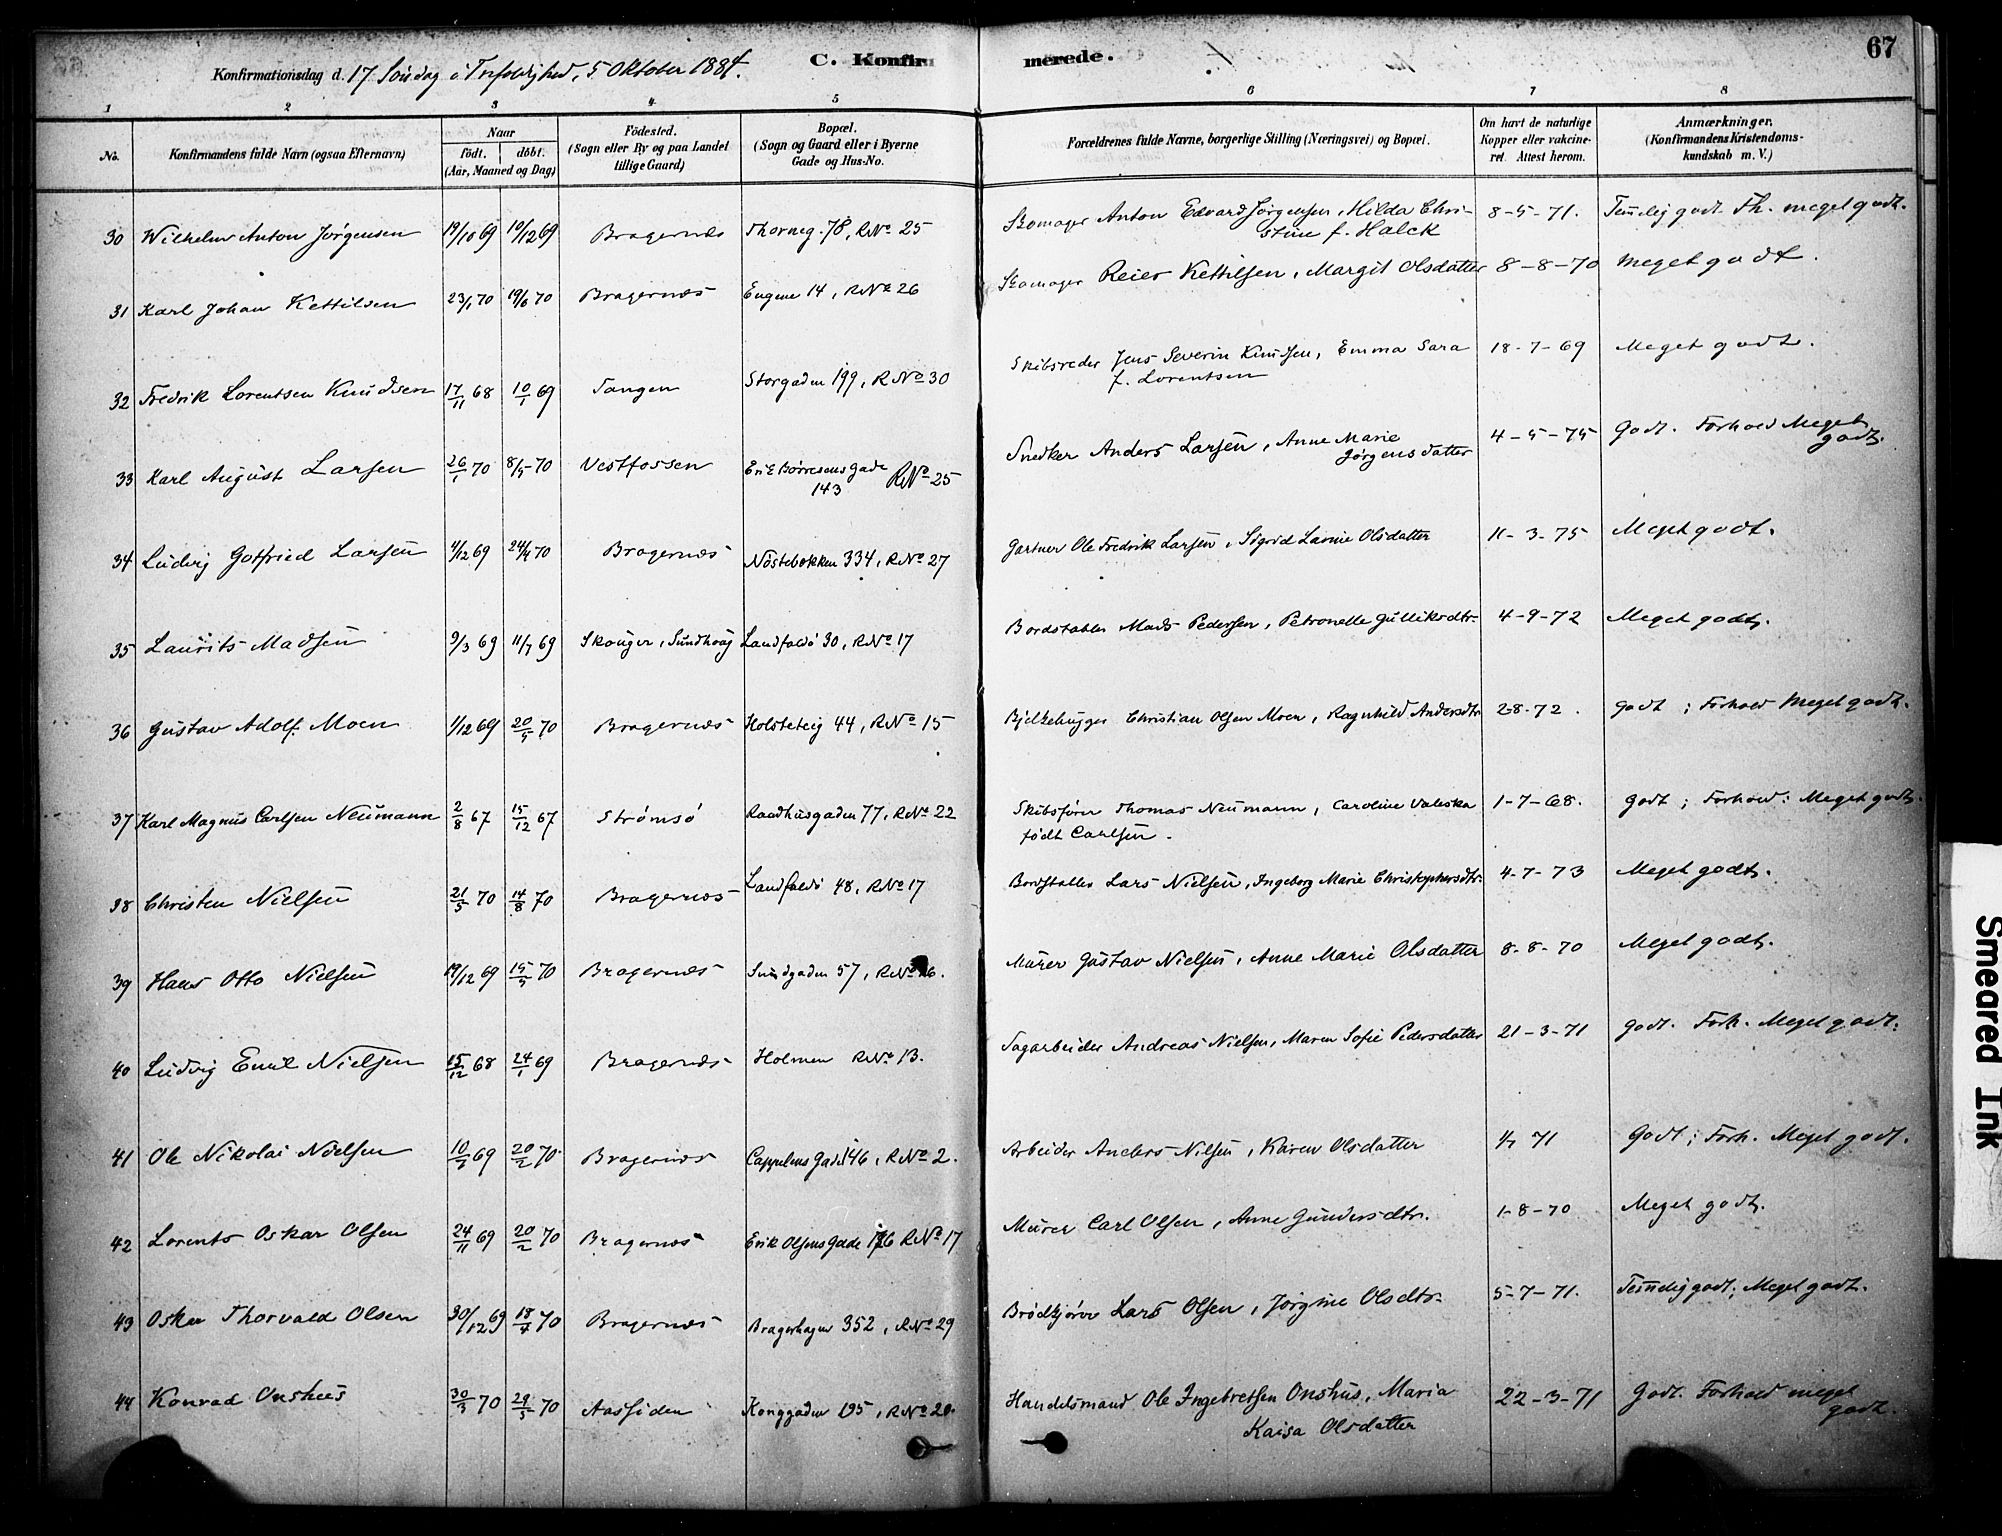 67
Konfirmationsdag d. 17 Søndag e Trefoldighed, 5 Oktober 1884.
C. Konfirmerede.
1 2 3 4 5 6 7 8
No.
Konfirmandens fulde Navn (ogsaa Efternavn)
Naar
födt. döbt.
(Aar, Maaned og Dag)
Födested.
(Sogn eller By og paa Landet
tillige Gaard)
Bopæl.
(Sogn og Gaard eller i Byerne
Gade og Hus-No.
Forældrenes fulde Navne, borgerlige Stilling (Næringsvei) og Bopæl.
Om havt de naturlige
Kopper eller vakcine-
ret. Attest herom.
Anmærkninger.
(Konfirmandens Kristendoms-
kundskab m. V.)
30 Wilhelm Anton Jørgensen 19/10 69 19/12 69 Bragernæs Thorneg. 78, R.No 25 Skomager Anton Edvard Jørgensen, Hilda Chri- 8-5-71. Temelig godt. Fh. meget godt.
stine f. Halck
31 Karl Johan Kettilsen 23/1 70 19/6 70 Bragernæs Engene 14, R.No 26 Skomager Reier Kettilsen, Margit Olsdatter 8-8-70 Meget godt.
32 Fredrik Lorentsen Knudsen 17/11 68 10/1 69 Tangen Storgaden 199, R.No 30 Skibsreder Jens Severin Knudsen, Emma Sara 18-7-69 Meget godt.
f. Lorentsen
33 Karl August Larsen 26/1 70 8/5 70 Vestfossen Erik Børresens gade R.No 25 Snedker Anders Larsen, Anne Marie 4-5-75 Godt. Forhold Meget
143 Jørgensdatter godt.
34 Ludvig Gotfried Larsen 1/12 69 24/4 70 Bragernæs Nöstebakken 334, R.No 27 Gartner Ole Fredrik Larsen, Sigrid Lavine Olsdatter 11-3-75 Meget godt.
35 Laurits Madsen 9/3 69 11/7 69 Skouger, Sundhaug Landfaldö 30, R.No 17 Bordstabler Mads Pedersen, Petronelle Gulliksdtr. 4-9-72 Meget godt.
36 Gustav Adolf Moen 1/12 69 20/5 70 Bragernæs Holsteteig 44, R.No 15 Bjelkehugger Christian Olsen Moen, Ragnhild Andersdtr 2-8-72. Godt; Forhold Meget godt.
37 Karl Magnus Carlsen Neumann 2/8 67 15/12 67 Strømsö Raadhusgaden 77, R.No 22 Skibsfører Thomas Neumann, Caroline Valeska 1-7-68. Godt; Forhold: Meget godt.
födt Carlsen.
38 Christen Nielsen 21/5 70 14/8 70 Bragernæs Landfaldö 48, R.No 17 Bordstabler Lars Nielsen, Ingeborg Marie Christophersdtr. 4-7-73 Meget godt.
39 Hans Otto Nielsen 19/12 69 15/5 70 Bragernæs Sundgaden 57, R.No 26. Murer Gustav Nielsen, Anne Marie Olsdatter 8-8-70 Meget godt.
40 Ludvig Emil Nielsen 15/12 68 24/1 69 Bragernæs Holmen R.No 13. Sagarbeider Andreas Nielsen, Maren Sofie Pedersdatter 21-3-71 Godt. Forh. Meget godt.
41 Ole Nikolai Nielsen 10/7 69 20/2 70 Bragernæs Cappelens Gade 146, R.No 2. Arbeider Anders Nilsen, Karen Olsdatter 71 Godt; Forh. Meget godt.
42 Lorents Oskar Olsen 24/11 69 20/2 70 Bragernæs Erik Olsens Gade R.No 17 Murer Carl Olsen, Anne Gundersdtr. 1-8-70 Meget godt.
43 Oskar Thorvald Olsen 30/12 69 18/4 70 Bragernæs Bragerhagen 352, R.No 29 Brödkjører Lars Olsen, Jørgine Olsdtr. 5-7-71. Temelig godt; Meget godt.
44 Konrad Onshus 30/3 70 29/5 70 Aassiden Konggaden 195, R.No 20. Handelsmand Ole Ingebretsen Onshus, Maria 22-3-71 Godt. Forhold meget
Kaisa Olsdatter godt.
Smeared Ink